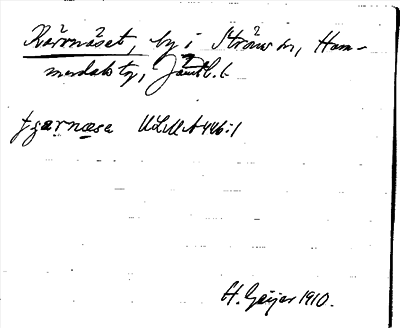 Kärrnäset, by i Ströms sn, Ham-
merdals tg, Jämtl. l.
ţgærnæsa ULMA 446:1
H. Geijer 1910.